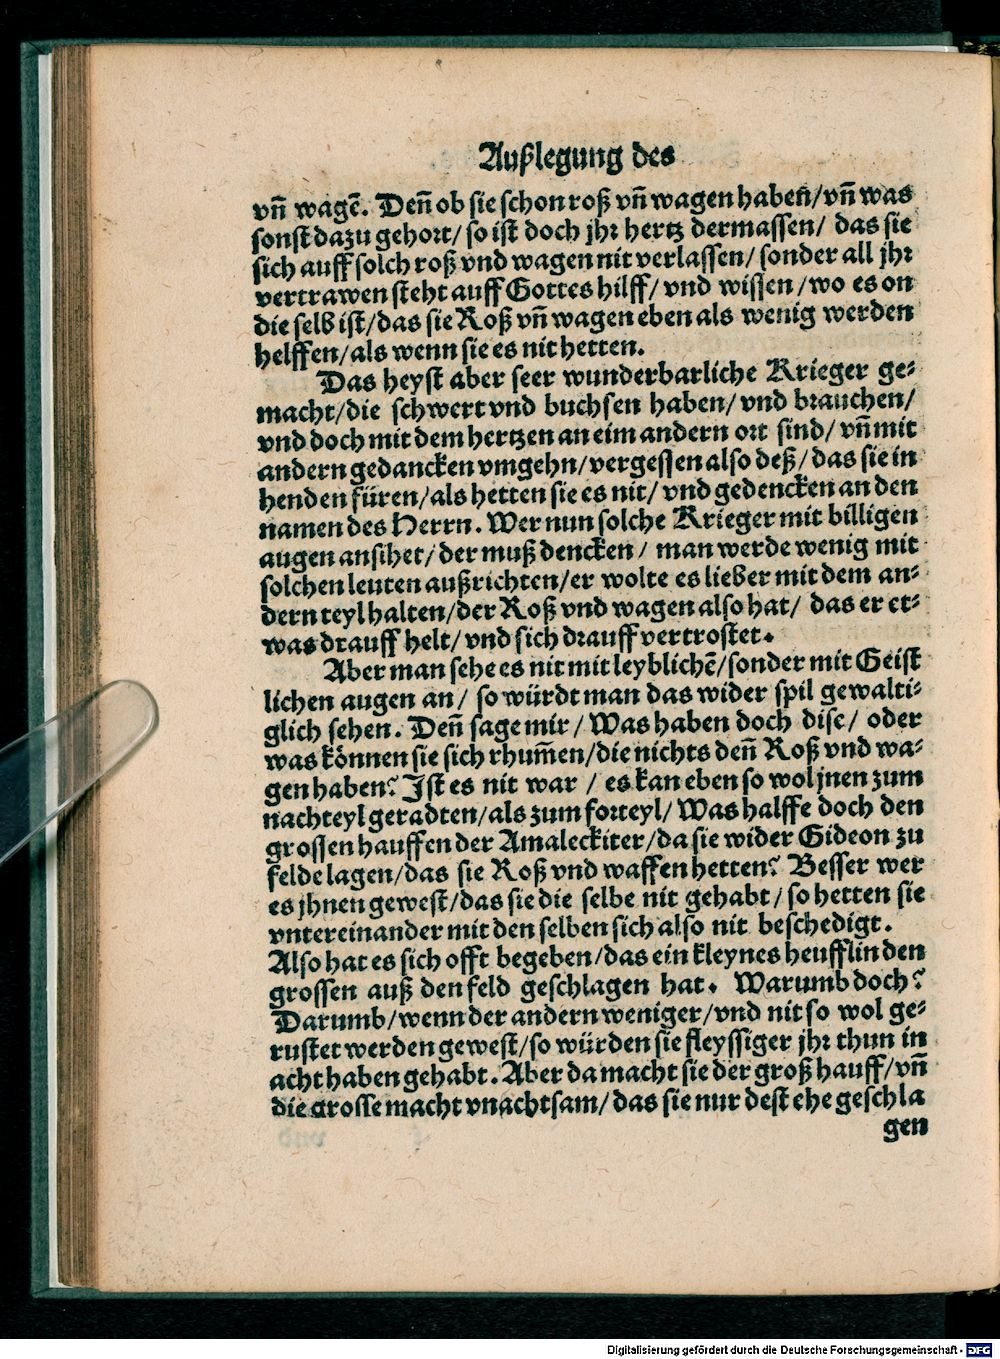 Außlegung des
vñ wagẽ. Deñ ob sie schon roß vñ wagen haben/vñ was
sonst dazu gehort/ so ist doch jhr hertz dermassen/ das sie
sich auff solch roß vnd wagen nit verlassen/ sonder all jhr
vertrawen steht auff Gottes hilff/ vnd wissen/wo es on
die selb ist/das sie Roß vñ wagen eben als wenig werden
helffen/als wenn sie es nit hetten.
Das heyst aber seer wunderbarliche Krieger ge⸗
macht/die schwert vnd buchsen haben/ vnd brauchen/
vnd doch mit dem hertzen an eim andern ort sind/ vñ mit
andern gedancken vmgehn/vergessen also deß/ das sie in
henden füren/als hetten sie es nit/ vnd gedencken an den
namen des Herrn. Wer nun solche Krieger mit billigen
augen ansihet/ der muß dencken/ man werde wenig mit
solchen leuten außrichten/er wolte es lieber mit dem an⸗
dern teyl halten/der Roß vnd wagen also hat/ das er et⸗
was drauff helt/ vnd sich drauff vertrostet.
Aber man sehe es nit mit leyblichẽ/sonder mit Geist
lichen augen an/ so würdt man das wider spil gewalti⸗
glich sehen. Deñ sage mir/ Was haben doch dise/ oder
was können sie sich rhum̃en/die nichts deñ Roß vnd wa⸗
gen haben? Ist es nit war / es kan eben so wol jnen zum
nachteyl geradten/als zum forteyl/ Was halffe doch den
grossen hauffen der Amaleckiter/da sie wider Gideon zu
felde lagen/das sie Roß vnd waffen hetten? Besser wer
es jhnen gewest/das sie die selbe nit gehabt/ so hetten sie
vntereinander mit den selben sich also nit beschedigt.
Also hat es sich offt begeben/das ein kleynes heufflin den
grossen auß den feld geschlagen hat. Warumb doch?
Darumb/wenn der andern weniger/vnd nit so wol ge⸗
rustet werden gewest/so würden sie fleyssiger jhr thun in
acht haben gehabt. Aber da macht sie der groß hauff/vñ
die grosse macht vnachtsam/das sie nur dest ehe geschla
gen
Digitalisierung gefördert durch die Deutsche Forschungsgemeinschaft - DFG